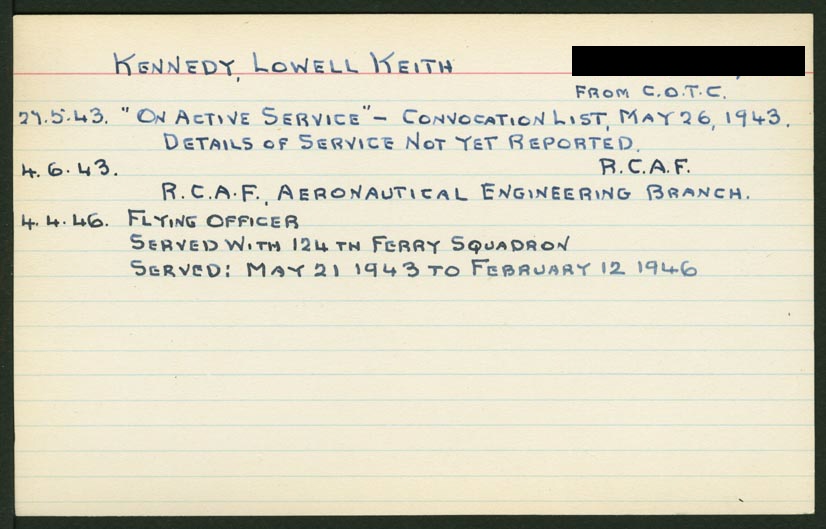 KENNEDY, LOWELL KEITH
FROM C.O.T.C.
27.5.43. "ON ACTIVE SERVICE" - CONVOCATION LIST, MAY 26, 1943.
DETAILS OF SERVICE NOT YET REPORTED.
4.6.43. R.C.A.F.
R.C.A.F., AERONAUTICAL ENGINEERING BRANCH.
4.4.46. FLYING OFFICER
SERVED WITH 124TH FERRY SQUADRON
SERVED: MAY 21 1943 TO FEBRUARY 12 1946